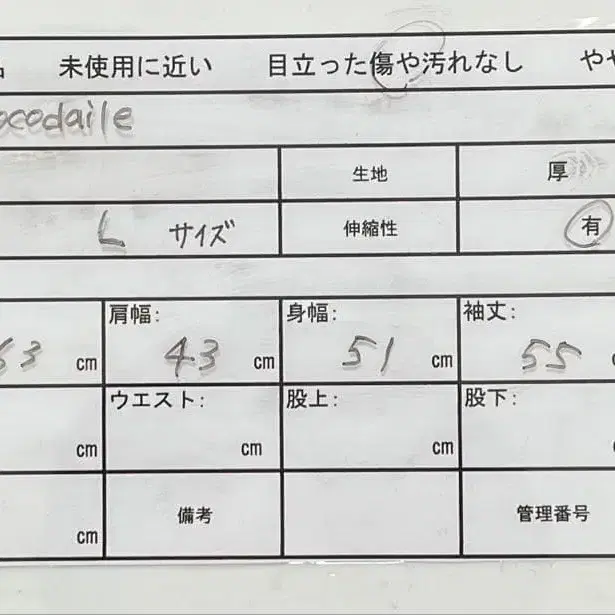 未使用に近い 目立った傷や汚れなし やや
ocodaile
生地 厚
L サイズ 伸縮性 有
肩幅: 身幅: 袖丈:
63 cm 43 cm 51 cm 55
ウエスト: 股上: 股下:
cm cm cm
cm 備考 管理番号